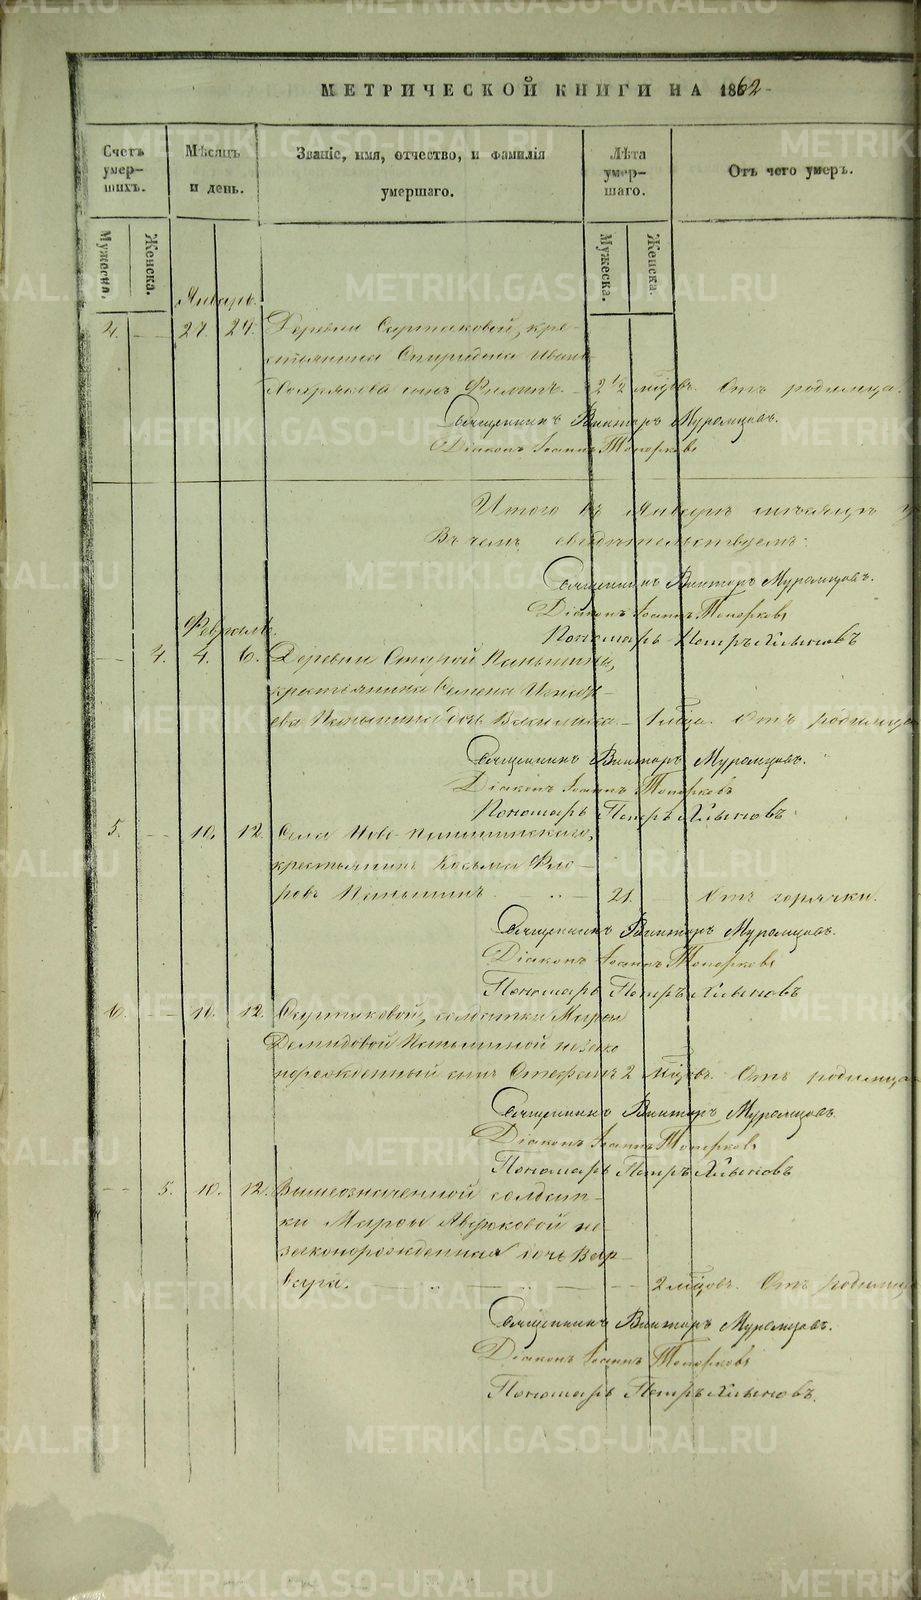 МЕТРИЧЕСКОЙ КНИГИ НА 1862
Счетъ умер-шихъ. Мѣсяцъ и день. Званіе, имя, отчество, и фамилія умершаго. Лѣта умер-шаго. Отъ чего умеръ.
Мужеска. Женска. Мужеска. Женска.
Январь.
4. — 22. 24. Деревни крес-
тьянина Спиридона Ивано
сынъ 2 1/2 мѣцовъ. Отъ родимца.
Священникъ Викторъ Муромцовъ.
Діаконъ Іоаннъ Топорковъ
Итого въ Январѣ мѣсяцѣ
Въ чемъ свидѣтельствуемъ:
Священникъ Викторъ Муромцовъ.
Діаконъ Іоаннъ Топорковъ
Пономарь Петръ Хлыновъ
Февраль.
— 4. 4. 6. Деревни Старой Паньшиной,
крестьянина Семена
ева Паньшина дочь Василиса — 1 мѣца. Отъ родимца
Священникъ Викторъ Муромцовъ.
Діаконъ Іоаннъ Топорковъ
Пономарь Петръ Хлыновъ
5. — 10. 12. Села Ново-Паньшинскаго,
крестьянинъ Козьма Фло-
ровъ Паньшинъ — 21. — Отъ горячки.
Священникъ Викторъ Муромцовъ.
Діаконъ Іоаннъ Топорковъ
Пономарь Петръ Хлыновъ
6. — 10. 12. солдатки Марфы
Демидовой Паньшиной незако
норожденный сынъ Стефанъ 2 мѣцовъ. Отъ родимца
Священникъ Викторъ Муромцовъ.
Діаконъ Іоаннъ Топорковъ
Пономарь Петръ Хлыновъ
— 5. 10. 12. Вышеозначенной солдат-
ки Марфы не-
законорожденная дочь Вар-
вара. — 2 мѣцовъ. Отъ родимца
Священникъ Викторъ Муромцовъ.
Діаконъ Іоаннъ Топорковъ
Пономарь Петръ Хлыновъ.
METRIKI.GASO-URAL.RU